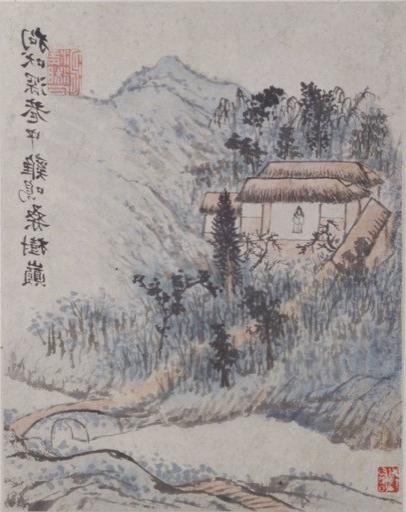 狗吠深巷中雞鳴桑樹巔